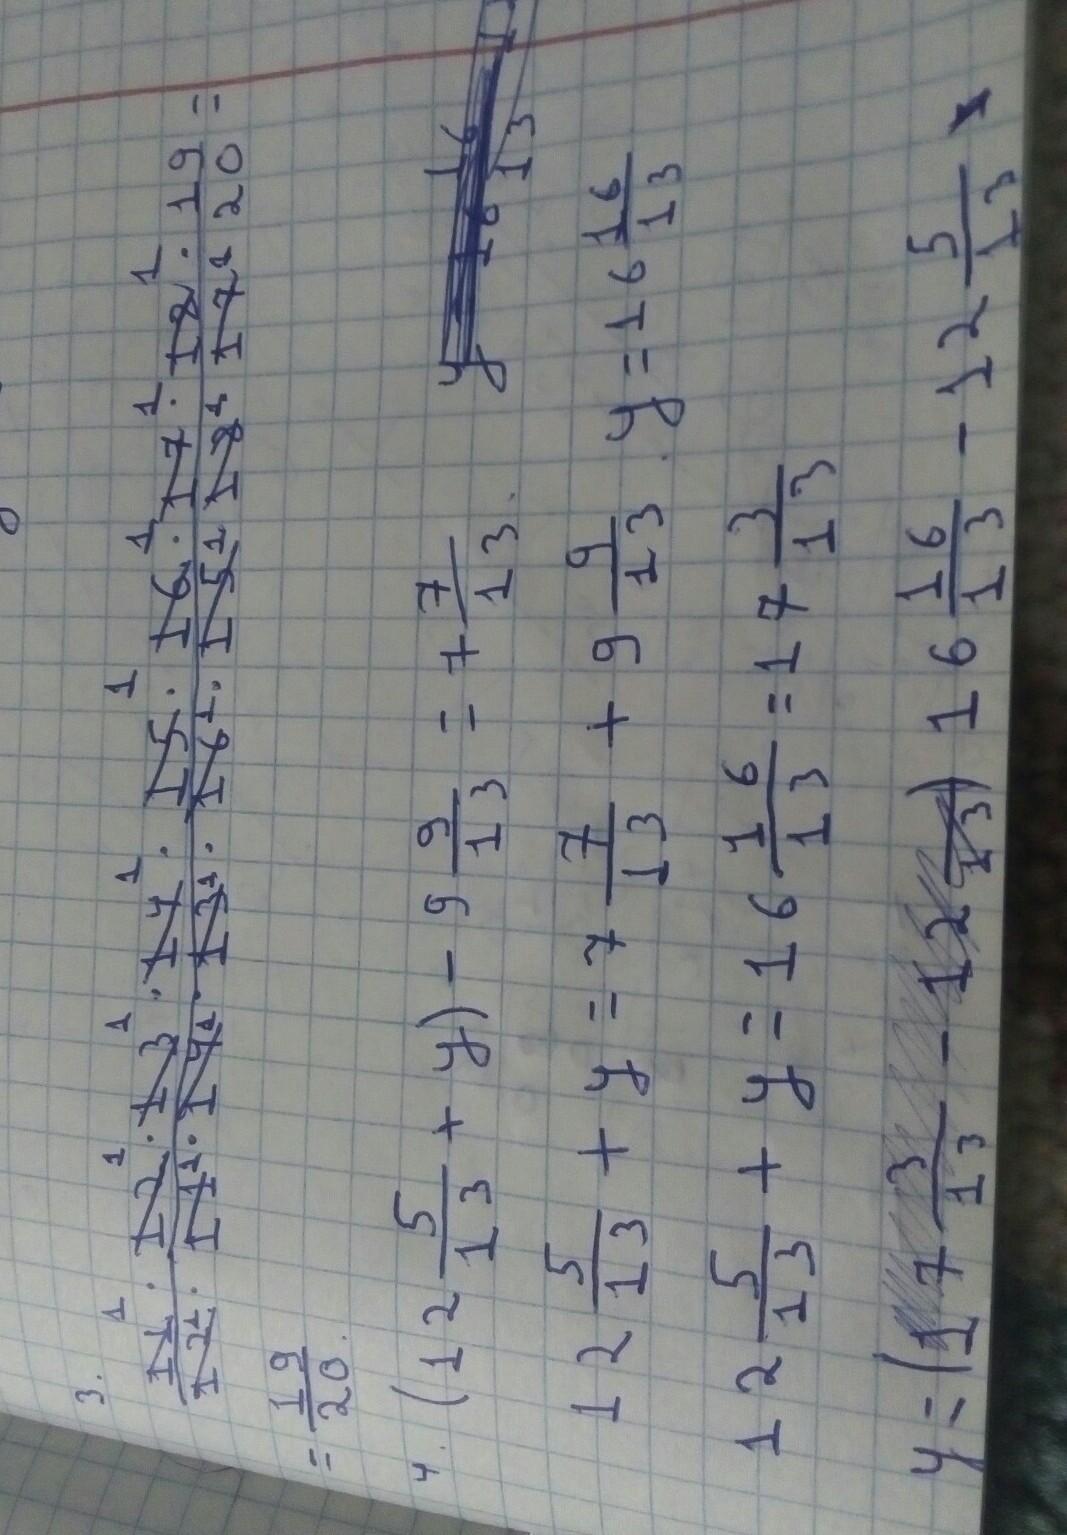 3.
11 · 12 · 13 · 14 · 15 · 16 · 17 · 18 · 19 / 12 · 11 · 14 · 13 · 16 · 15 · 18 · 17 · 20 =
= 19/20.
4. (12 5/13 + y) - 9 9/13 = 7 7/13.
12 5/13 + y = 7 7/13 + 9 9/13. y = 16 16/13
12 5/13 + y = 16 16/13 = 17 3/13
y = (17 3/13 - 12 /13) 16 16/13 - 12 5/13